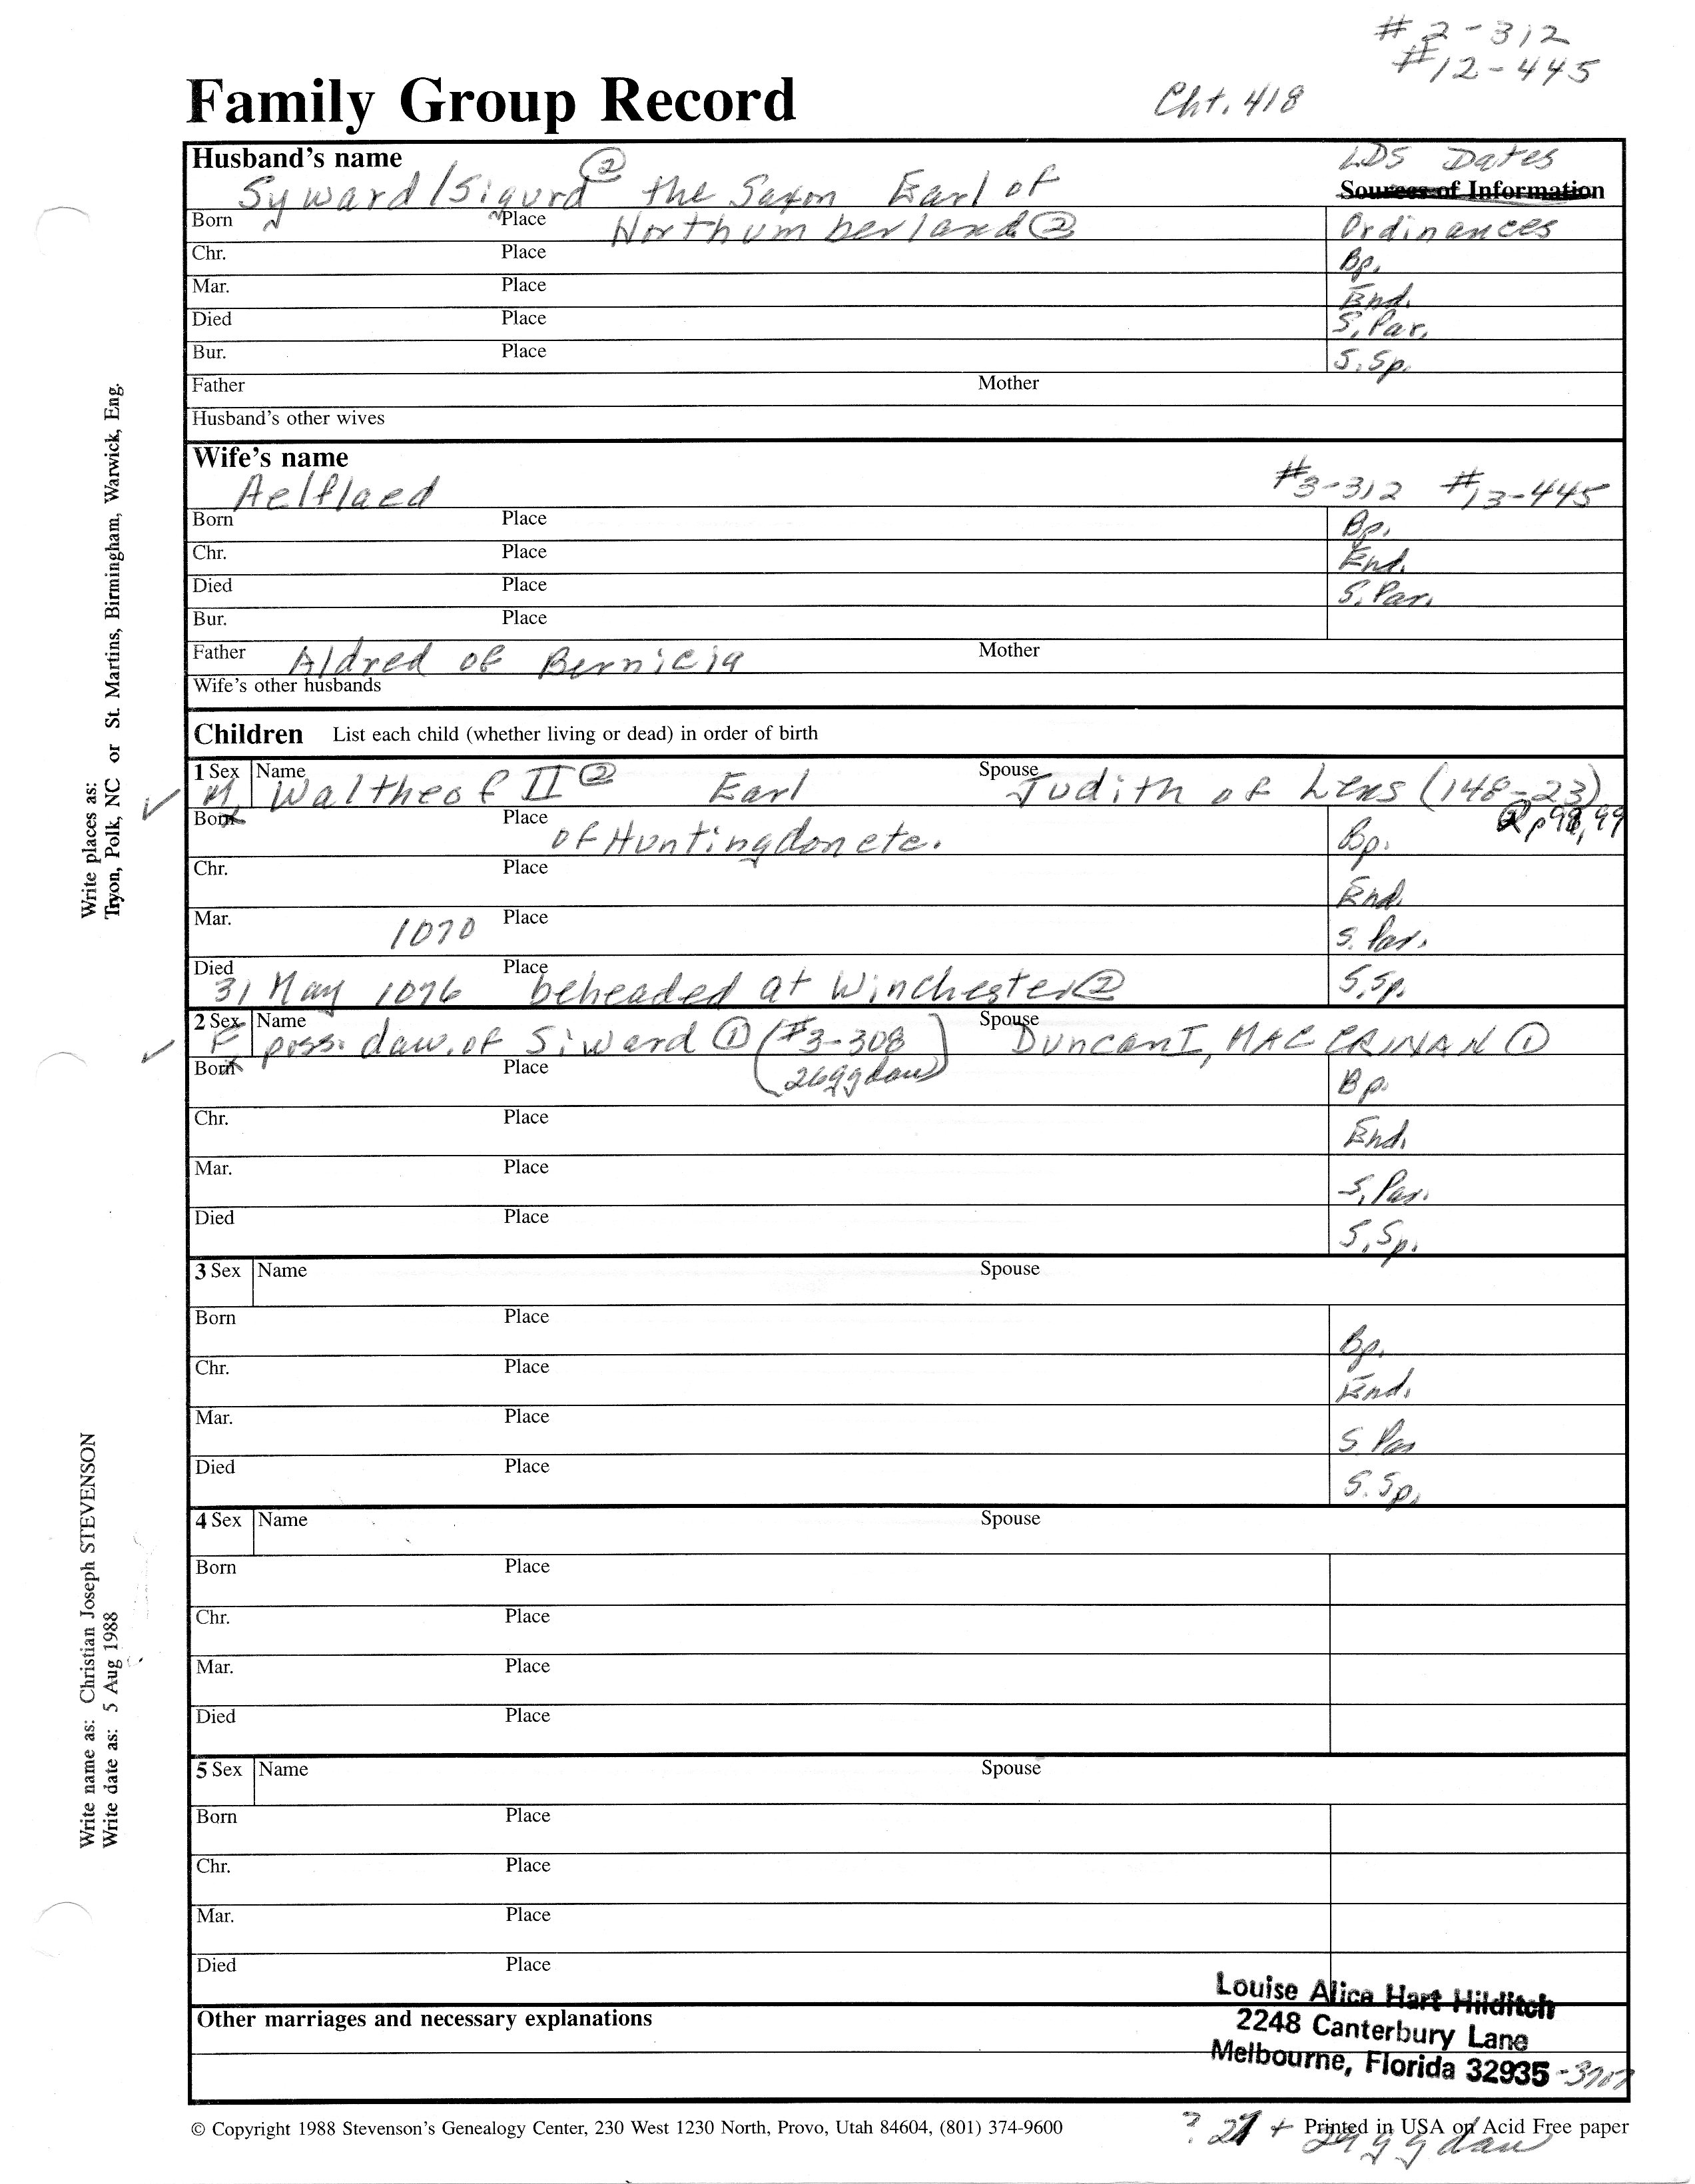 #2-312
#12-445
Cht. 418
Family Group Record
Husband's name
LDS Dates
Syward/Sigurd ② the Saxon Earl of
Sources of Information
Born Place Northumberland ② Ordinances
Chr. Place Bp.
Mar. Place End.
Died Place S. Par.
Bur. Place S. Sp.
Father Mother
Husband's other wives
Wife's name
Aelflaed #3-312 #13-445
Born Place Bp.
Chr. Place End.
Died Place S. Par.
Bur. Place
Father Aldred of Bernicia Mother
Wife's other husbands
Children List each child (whether living or dead) in order of birth
1 Sex Name Spouse
M. Waltheof II ② Earl Judith of Lens (148-23)
Born Place of Huntingdon etc. Bp. ② p 98, 99
Chr. Place End
Mar. 1070 Place S. Par.
Died Place
31 May 1076 beheaded at Winchester ② S. Sp.
2 Sex Name Spouse
F poss. dau. of Siward ① (#3-308 Duncan I, MAC CRINAN ①
Born Place 26ggdau) Bp.
Chr. Place End.
Mar. Place S. Par.
Died Place S. Sp.
3 Sex Name Spouse
Born Place Bp.
Chr. Place End.
Mar. Place S Par
Died Place S. Sp.
4 Sex Name Spouse
Born Place
Chr. Place
Mar. Place
Died Place
5 Sex Name Spouse
Born Place
Chr. Place
Mar. Place
Died Place
Louise Alice Hart Hilditch
Other marriages and necessary explanations
2248 Canterbury Lane
Melbourne, Florida 32935
© Copyright 1988 Stevenson's Genealogy Center, 230 West 1230 North, Provo, Utah 84604, (801) 374-9600
Printed in USA on Acid Free paper
? + ggdau
Write places as:
Tryon, Polk, NC or St. Martins, Birmingham, Warwick, Eng.
Write name as: Christian Joseph STEVENSON
Write date as: 5 Aug 1988